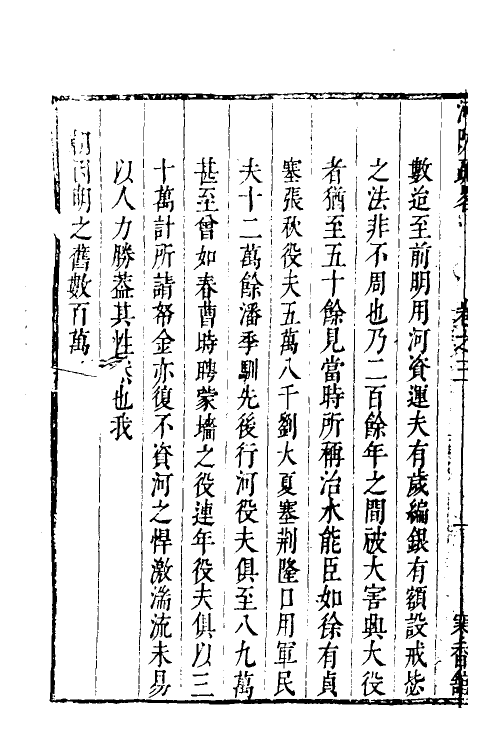 卷之三
數迨至前明用河資運夫有歲編銀有額設戒愆
之法非不周也乃二百餘年之間破大害興大役
者猶至五十餘見當時所稱治水能臣如徐有貞
塞張秋役夫五萬八千劉大夏塞荆隆口用軍民
夫十二萬餘潘季馴先後行河役夫俱至八九萬
甚至曾如春曹時聘蒙墻之役連年役夫俱以三
十萬計所請帑金亦復不資河之悍激湍流未易
以人力勝葢其性然也我
朝因明之舊數百萬